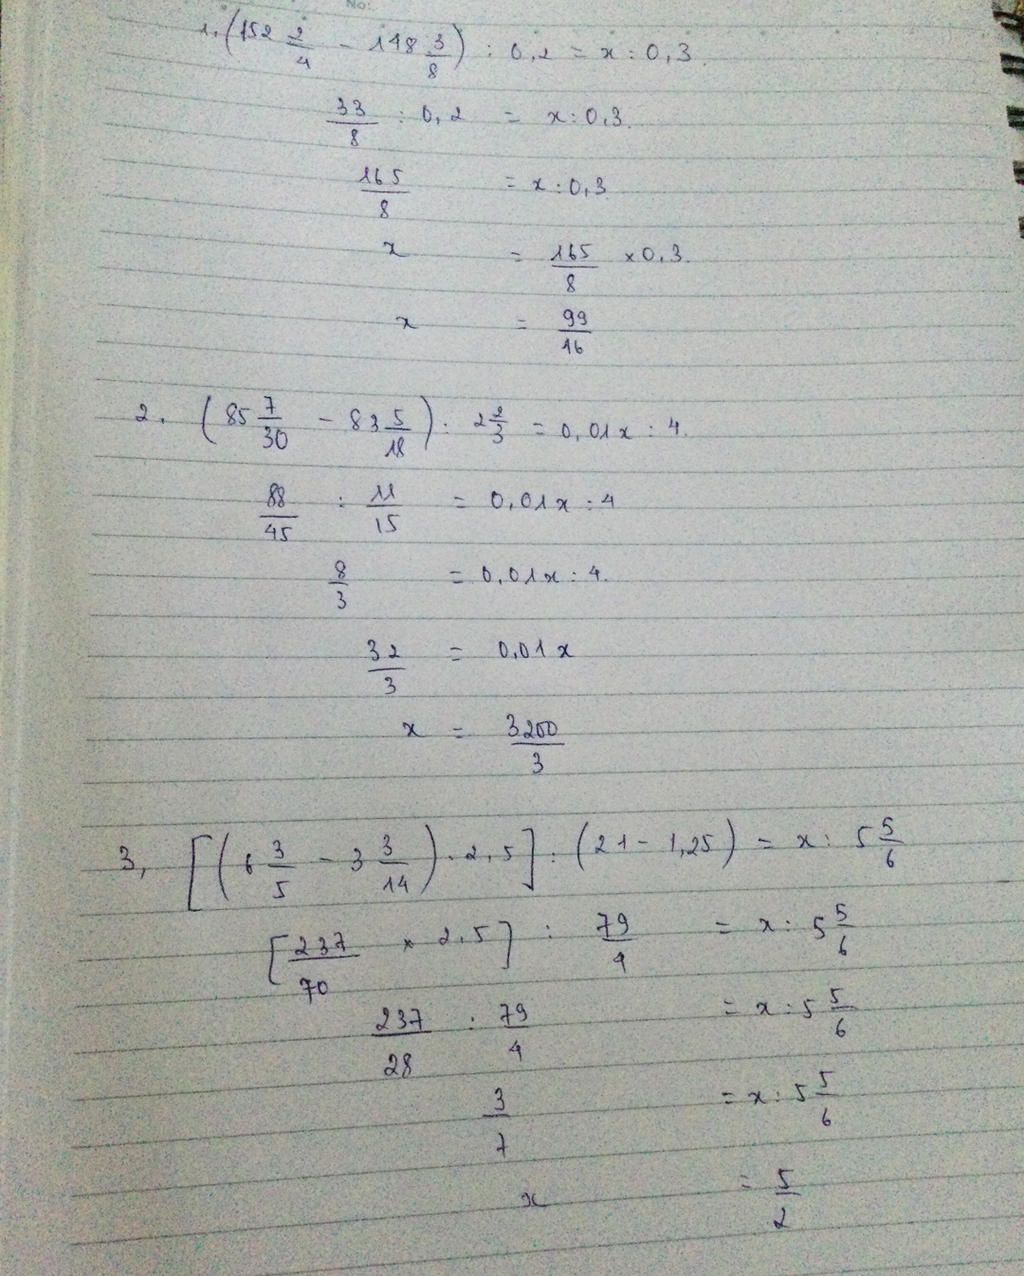 No:
1. (152 2/4 - 148 3/8) : 0,2 = x : 0,3.
33/8 : 0,2 = x : 0,3.
165/8 = x : 0,3
x = 165/8 × 0,3.
x = 99/16
2. (85 7/30 - 83 5/18) : 2 2/3 = 0,01x : 4.
88/45 : 11/15 = 0,01x : 4
8/3 = 0,01x : 4.
32/3 = 0,01x
x = 3200/3
3, [(6 3/5 - 3 3/14) . 2,5] : (21 - 1,25) = x : 5 5/6
[237/70 × 2,5] : 79/4 = x : 5 5/6
237/28 : 79/4 = x : 5 5/6
3/7 = x : 5 5/6
x = 5/2